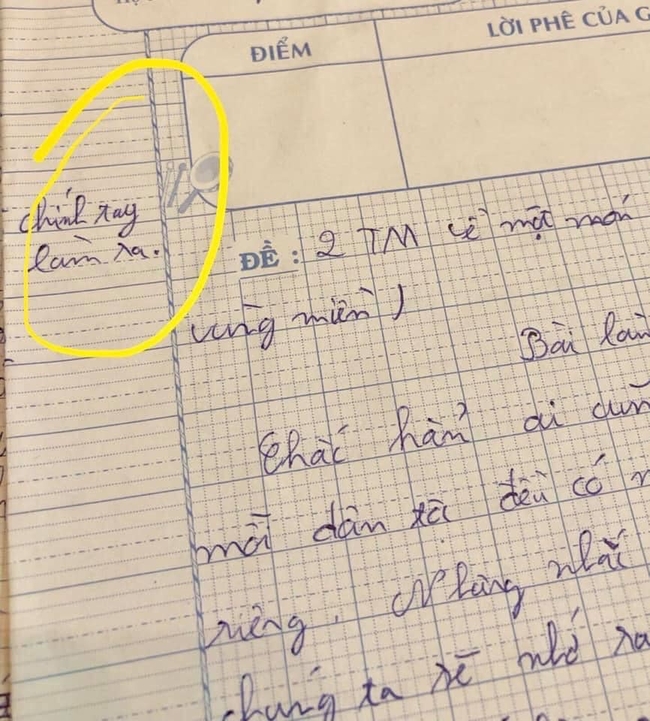 ĐIỂM
LỜI PHÊ CỦA G
chính tay
làm ra.
ĐỀ : 2 TM về một món
vùng miền)
Bài làm
Chắc hẳn ai cũn
mỗi dân tộc đều có n
riêng. Nhưng nhắc
chúng ta sẽ nhớ ra